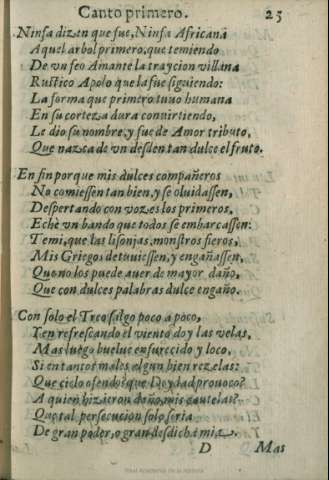 Canto primero. 25
Ninfa dizen que fue, Ninfa Africana
Aquel arbol primero, que temiendo
De vn feo Amante la traycion villana
Rustico Apolo que la fue siguiendo:
La forma que primero tuuo humana
En su corteza dura conuirtiendo,
Le dio su nombre, y fue de Amor tributo,
Que nazca de vn desden tan dulce el fruto.
En fin porque mis dulces compañeros
No comiessen tan bien, y se oluidassen,
Despertando con vozes los primeros,
Echè vn bando que todos se embarcassen:
Temi, que las lisonjas, monstros fieros,
Mis Griegos detuuiessen, y engañassen,
Que no los puede auer de mayor daño,
Que con dulces palabras dulce engaño.
Con solo el Treo salgo poco a poco,
Y en refrescando el viento doy las velas,
Mas luego buelue enfurecido y loco,
Si en tantos males algun bien rezelas:
Que cielo ofendo? que Deydad prouoco?
A quien hizieron daño, mis cautelas?
Que tal persecucion solo seria
De gran poder, o gran desdicha mia.
D Mas
Real Academia de la Historia